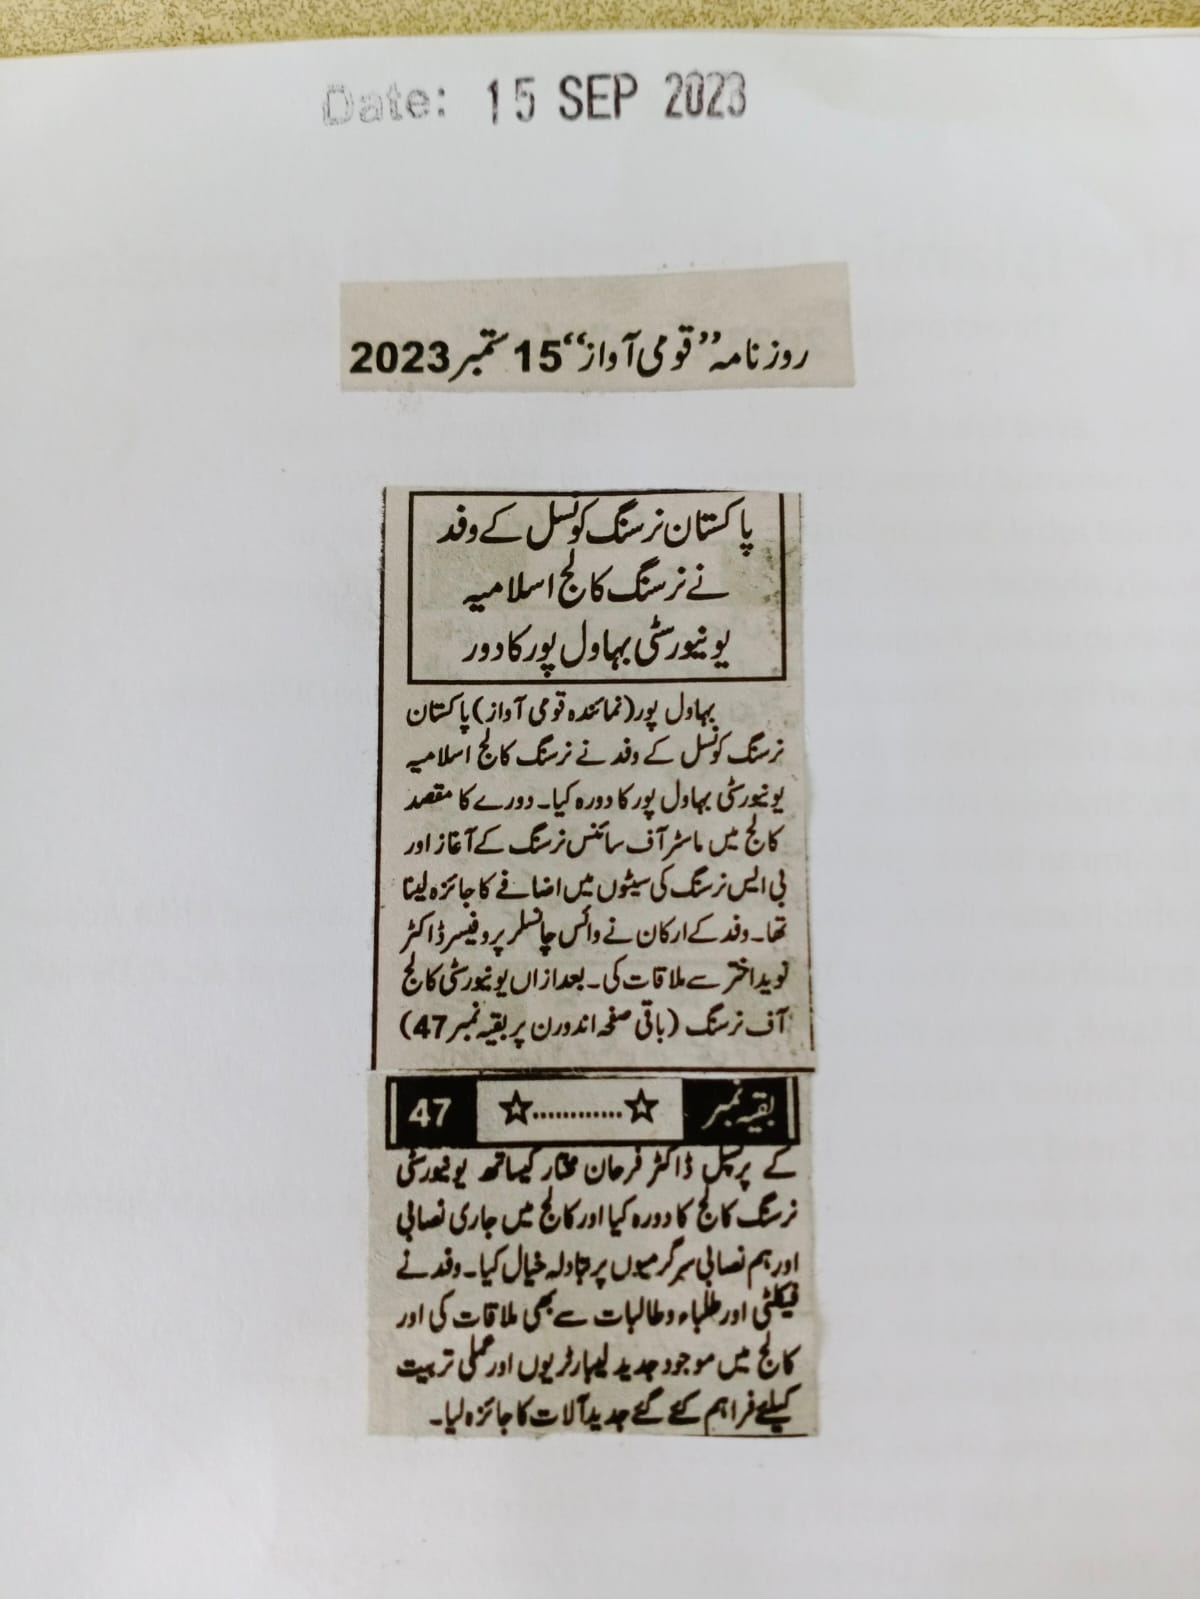 Date: 15 SEP 2023
روزنامہ ”قومی آواز“ 15 ستمبر 2023
پاکستان نرسنگ کونسل کے وفد
نے نرسنگ کالج اسلامیہ
یونیورسٹی بہاول پور کا دور
بہاول پور (نمائندہ قومی آواز) پاکستان
نرسنگ کونسل کے وفد نے نرسنگ کالج اسلامیہ
یونیورسٹی بہاول پور کا دورہ کیا۔ دورے کا مقصد
کالج میں ماسٹر آف سائنس نرسنگ کے آغاز اور
بی ایس نرسنگ کی سیٹوں میں اضافے کا جائزہ لینا
تھا۔ وفد کے ارکان نے وائس چانسلر پروفیسر ڈاکٹر
نوید اختر سے ملاقات کی۔ بعد ازاں یونیورسٹی کالج
آف نرسنگ (باقی صفحہ اندورن پر بقیہ نمبر 47)
بقیہ نمبر ☆............☆ 47
کے پرنسپل ڈاکٹر فرحان مختار کیساتھ یونیورسٹی
نرسنگ کالج کا دورہ کیا اور کالج میں جاری نصابی
اور ہم نصابی سرگرمیوں پر تبادلہ خیال کیا۔ وفد نے
فیکلٹی اور طلباء و طالبات سے بھی ملاقات کی اور
کالج میں موجود جدید لیبارٹریوں اور عملی تربیت
کیلئے فراہم کئے گئے جدید آلات کا جائزہ لیا۔